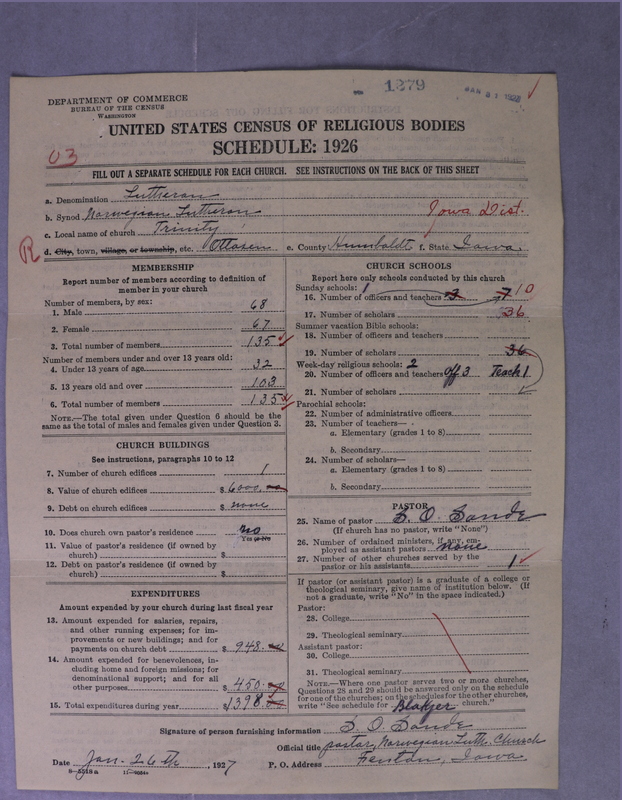 1279
JAN 31 1928
DEPARTMENT OF COMMERCE
BUREAU OF THE CENSUS
WASHINGTON
UNITED STATES CENSUS OF RELIGIOUS BODIES
03
SCHEDULE: 1926
FILL OUT A SEPARATE SCHEDULE FOR EACH CHURCH. SEE INSTRUCTIONS ON THE BACK OF THIS SHEET
a. Denomination Lutheran
b. Synod Norwegian Lutheran Iowa Dist.
c. Local name of church Trinity
R d. City, town, village, or township, etc. Ottosen e. County Humboldt f. State Iowa.
MEMBERSHIP
Report number of members according to definition of
member in your church
Number of members, by sex:
1. Male 68
2. Female 67
3. Total number of members 135
Number of members under and over 13 years old:
4. Under 13 years of age 32
5. 13 years old and over 103
6. Total number of members 135
NOTE.—The total given under Question 6 should be
same as the total of males and females given under Question 3.
CHURCH BUILDINGS
See instructions, paragraphs 10 to 12
7. Number of church edifices 1
8. Value of church edifices $ 6000.
9. Debt on church edifices $ none
10. Does church own pastor's residence no
Yes or No
11. Value of pastor's residence (if owned by
church) $
12. Debt on pastor's residence (if owned by
church) $
EXPENDITURES
Amount expended by your church during last fiscal year
13. Amount expended for salaries, repairs,
and other running expenses; for im-
provements or new buildings; and for
payments on church debt $ 948.
14. Amount expended for benevolences, in-
cluding home and foreign missions; for
denominational support; and for all
other purposes $ 450.
15. Total expenditures during year $ 1398.
CHURCH SCHOOLS
Report here only schools conducted by this church
Sunday schools: 1
16. Number of officers and teachers 3 7 10
17. Number of scholars 36
Summer vacation Bible schools:
18. Number of officers and teachers
19. Number of scholars 36
Week-day religious schools: 2
20. Number of officers and teachers Off 3 Teach 1
21. Number of scholars
Parochial schools:
22. Number of administrative officers
23. Number of teachers—
a. Elementary (grades 1 to 8)
b. Secondary
24. Number of scholars—
a. Elementary (grades 1 to 8)
b. Secondary
PASTOR
25. Name of pastor S. O. Sande
(If church has no pastor, write "None")
26. Number of ordained ministers, if any, em-
ployed as assistant pastors none
27. Number of other churches served by the
pastor or his assistants 1
If pastor (or assistant pastor) is a graduate of a college or
theological seminary, give name of institution below. (If
not a graduate, write "No" in the space indicated.)
Pastor:
28. College
29. Theological seminary
Assistant pastor:
30. College
31. Theological seminary
NOTE.—Where one pastor serves two or more churches,
Questions 28 and 29 should be answered only on the schedule
for one of the churches; on the schedules for the other churches,
write "See schedule for Blakjer church."
Signature of person furnishing information S. O. Sande
Official title pastor, Norwegian Luth. Church
Date Jan. 26th, 1927 P. O. Address Fenton, Iowa